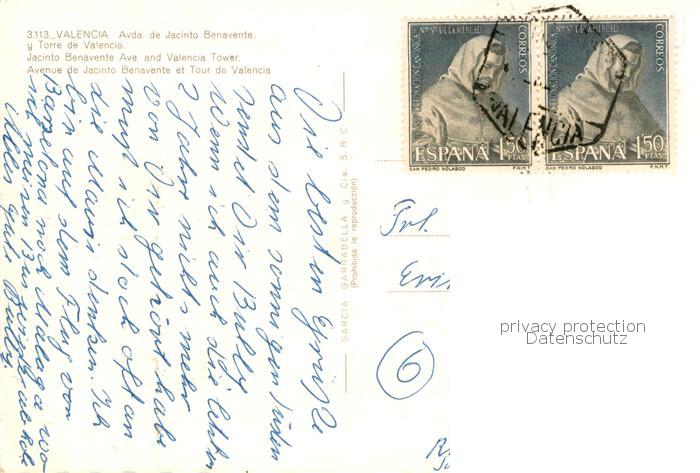 3.113._VALENCIA Avda. de Jacinto Benavente.
y Torre de Valencia.
Jacinto Benavente Ave and Valencia Tower.
Avenue de Jacinto Benavente et Tour de Valencia
Die besten Grüße
aus dem sonnigen Süden
sendet Dir Bully
Wenn ich auch die letzten
2 Jahre nichts mehr
von Dir gehört habe
muß ich doch oft an
die Maus denken. Ich
bin auf dem Flug von
Barzelona nach Malaga wo
mein
Alles Gute Bully
GARCIA GARRABELLA y Cia. S.R.C.
(Prohibida la reproducción)
Nª Sª DE LA MERCED
CORONACION CANONICA
CORREOS
ESPAÑA 1'50
PTAS
SAN PEDRO NOLASCO F.N.M.T.
Nª Sª DE LA MERCED
CORONACION CANONICA
CORREOS
ESPAÑA 1'50
PTAS
SAN PEDRO NOLASCO F.N.M.T.
VALENCIA
Frl.
Eri
6
privacy protection
Datenschutz